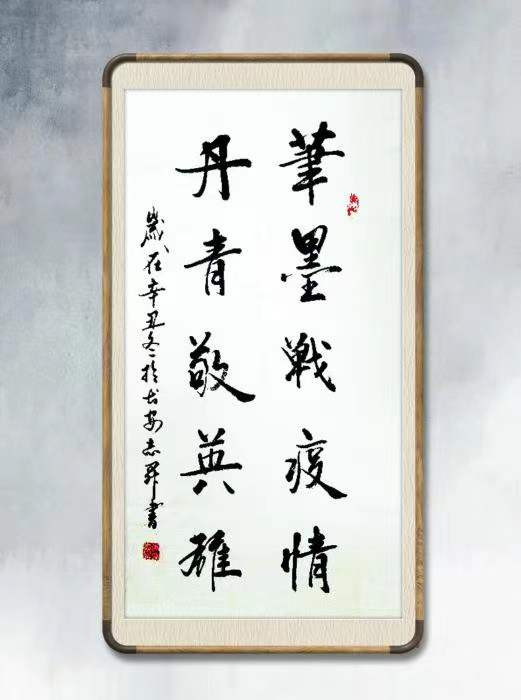 筆墨戰疫情
丹青敬英雄
歲在辛丑冬於长安志昇書